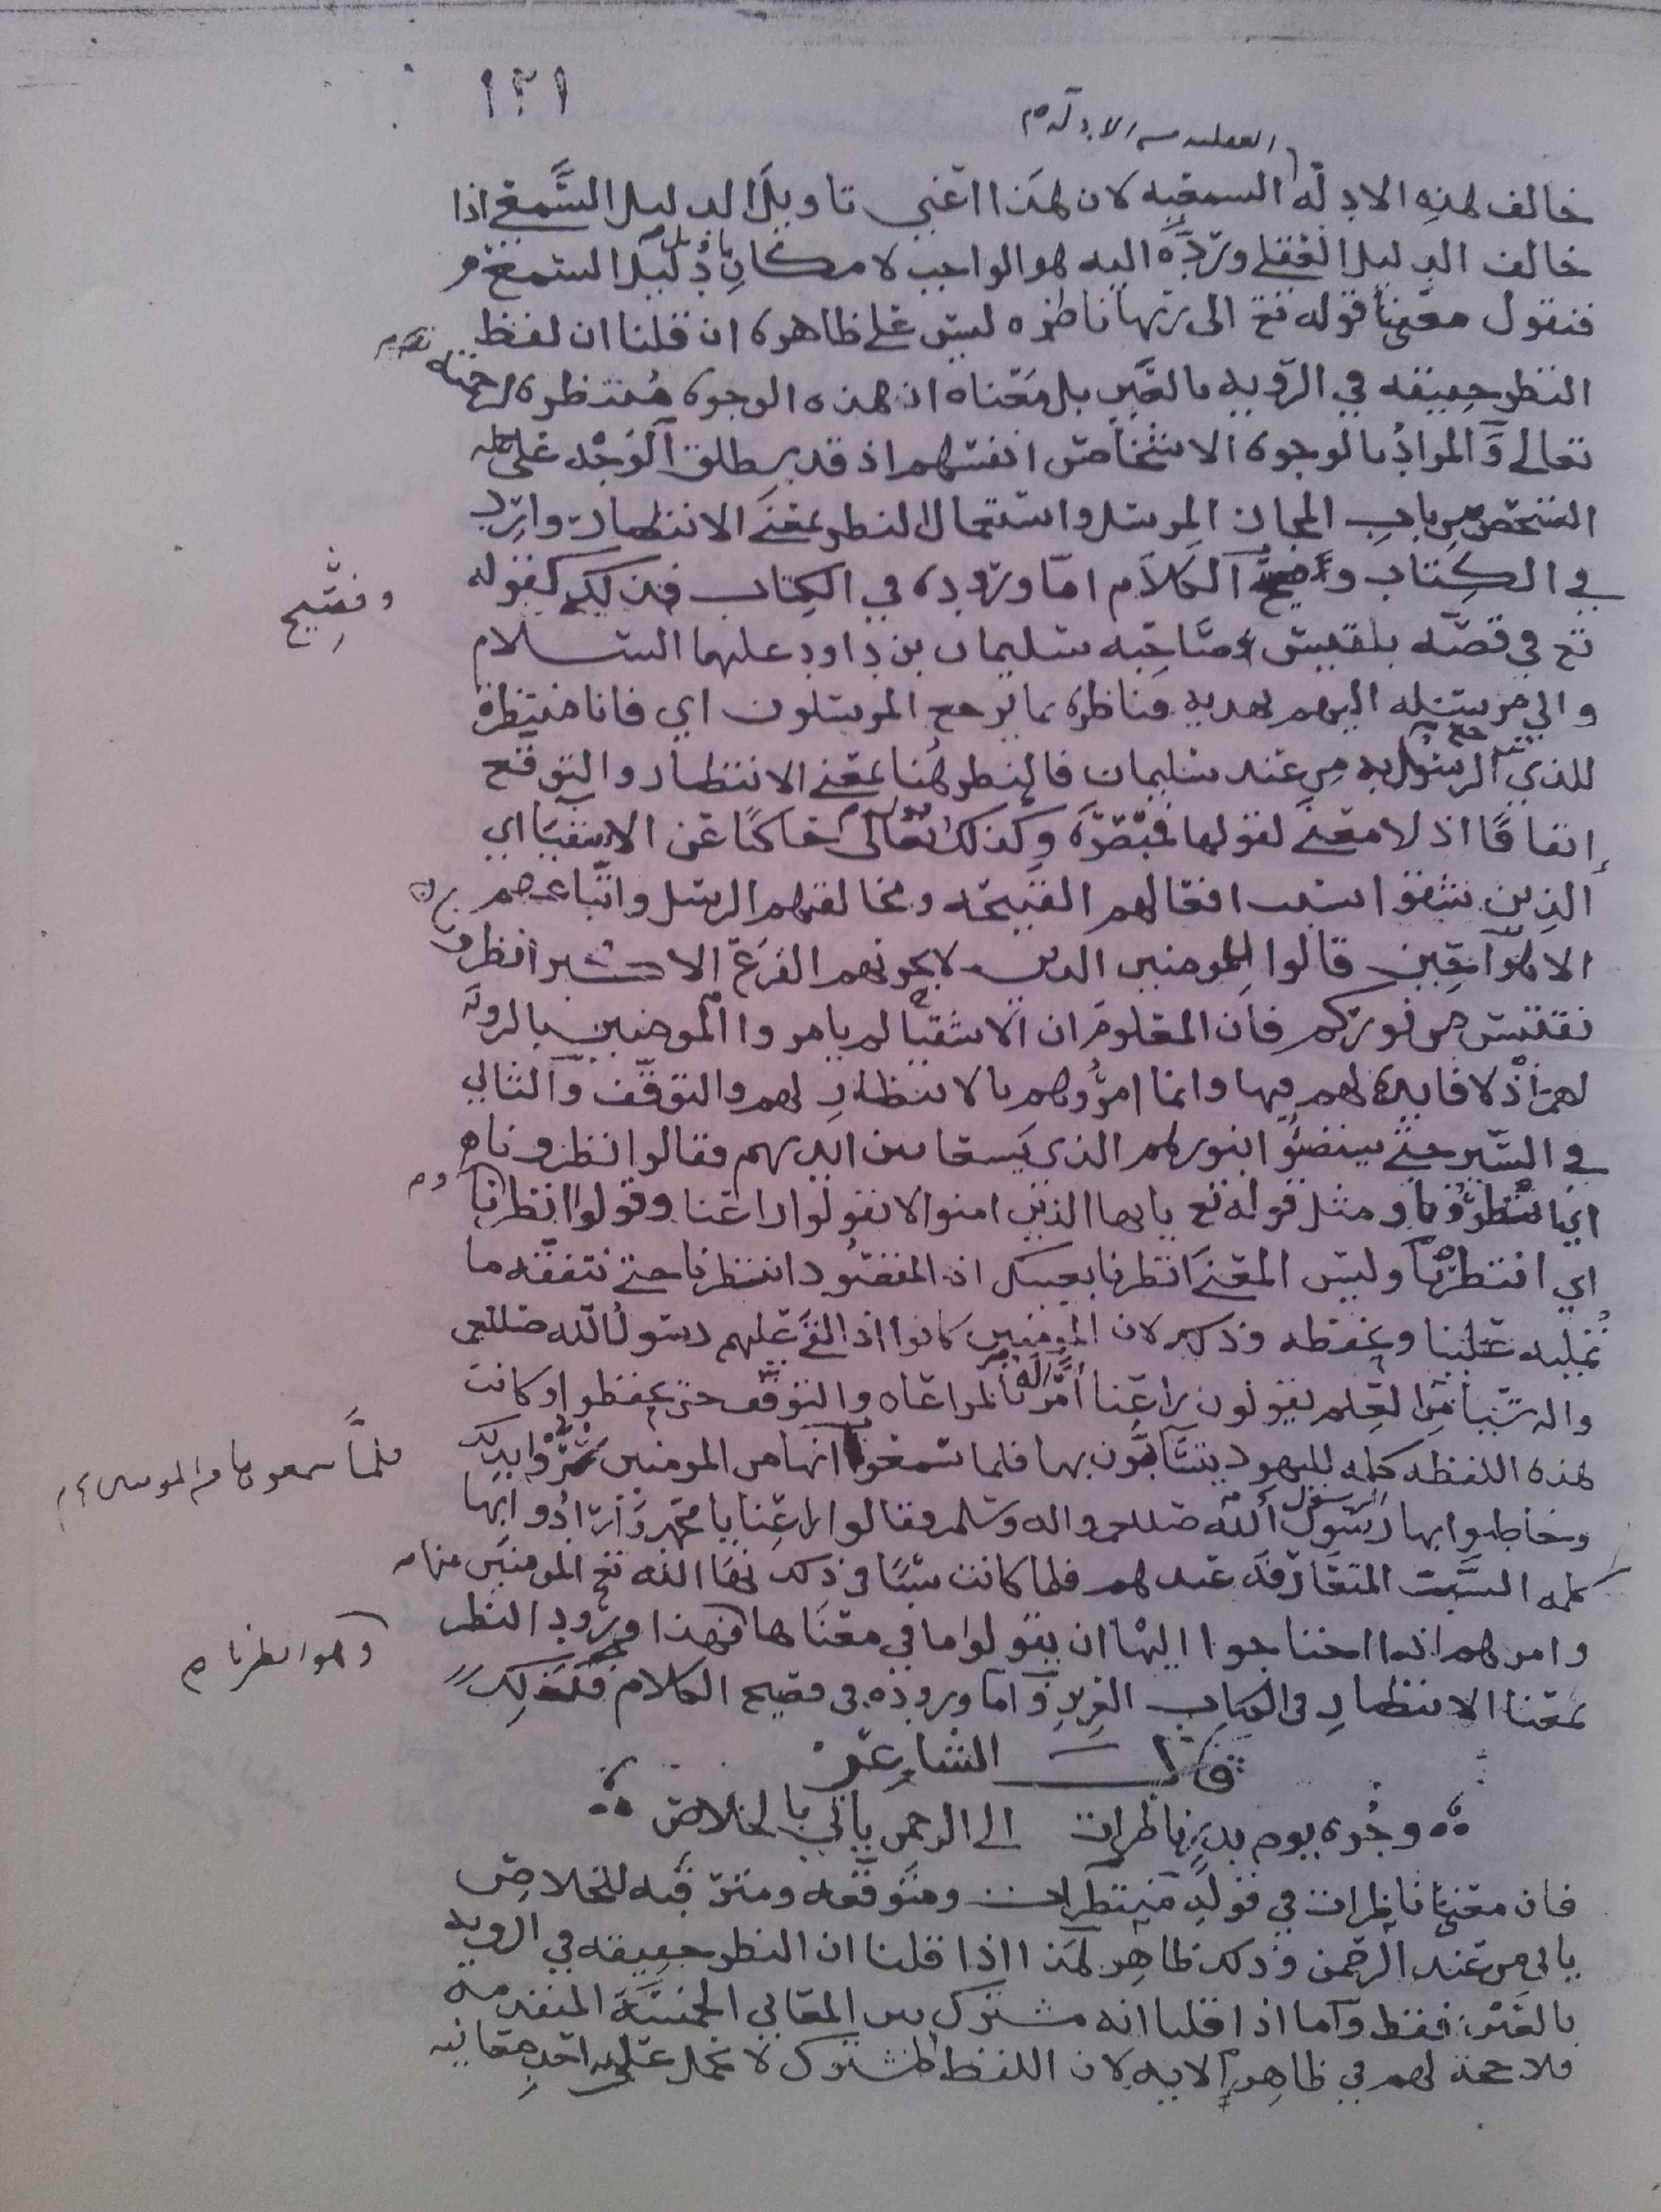 ١٢١
العقليه من الادله
خالف لهذه الادله السمعيه لان هذا اعني تاويل الدليل السمعي اذا
خالف الدليل العقلي وردّه اليه هو الواجب لامكان تاويل السمعي
فنقول معنى قوله تع الى ربها ناظره ليس على ظاهره ان قلنا ان لفظ
النظر حقيقه في الرؤيه بالعين بل معناه ان هذه الوجوه منتظره لرحمته
تعالى والمراد بالوجوه الاشخاص انفسهم اذ قد يطلق الوجه على
الشخص من باب المجاز المرسل واستعمال النظر بمعنى الانتظار وارد
في الكتاب وفصيح الكلام اما وروده في الكتاب فذلك كقوله
وفصيح
تع في قصه بلقيس وصاحبه سليمان بن داود عليهما السلام
واني مرسله اليهم بهديه فناظره بما يرجع المرسلون اي فانا منتظرة
للذي يرجع الرسول به من عند سليمان فالنظر هنا بمعنى الانتظار والتوقع
إتفاقًا اذ لا معنى لقولها فمبصرة وكذلك قوله تعالى حاكيًا عن الاشقيا اي
الذين شقوا بسبب افعالهم القبيحه ومخالفتهم الرسل واتباعهم
قالوا للمومنين الذين لا يحزنهم الفزع الاكبر انظرونا
نقتبس من نوركم فان المعلوم ان الاشقيا لم يامروا المومنين بالرويه
لهم اذ لا فايده لهم فيها وانما امروهم بالانتظار لهم والتوقف والتاني
في السير حتى يستضوا بنورهم الذي يسعا بين ايديهم فقالوا انظرونا
اي انتظرونا ومثل قوله تع يايها الذين امنوا لا تقولوا راعنا وقولوا انظرنا
اي انتظرنا وليس المعنى انظرنا بعينك اذ المقصود انتظرنا حتى نتفقه ما
تمليه علينا ونحفظه وذلك لان المومنين كانوا اذا القى عليهم رسول الله صللعم
واله شيا من العلم يقولون راعنا امر له بالمراعاه والتوقف حتى يحفظوا وكانت
هذه اللفظه كلمه لليهود يتسابون بها فلما سمعوا انها من المومنين سروا بذلك
فلما سمعوها من المومنين
وخاطبوا بها رسول الله صللعم واله وسلم وقالوا راعنا يا محمد وارادوا بها
كلمه السب المتعارفه عندهم فلما كانت سببًا في ذلك نها الله تع المومنين عنها
وامرهم اذا احتاجوا اليها ان يقولوا ما في معناها فهذا ورود النظر
وهو انظرنا
بمعنا الانتظار في الكتاب العزيز واما وروده في فصيح الكلام فكذلك
قال الشاعر
وجوه يوم بدر ناظرات الى الرحمن ياتي بالخلاص
فان معنى ناظرات في قوله منتظرات ومتوقعه ومترقبه للخلاص
ياتي من عند الرحمن وذلك ظاهر هذا اذا قلنا ان النظر حقيقه في الرويه
بالعين فقط واما اذا قلنا انه مشترك بين المعاني الخمسة المتقدمه
فلا حجه لهم في ظاهر الايه لان اللفظ المشترك لا يحمل على احد معانيه